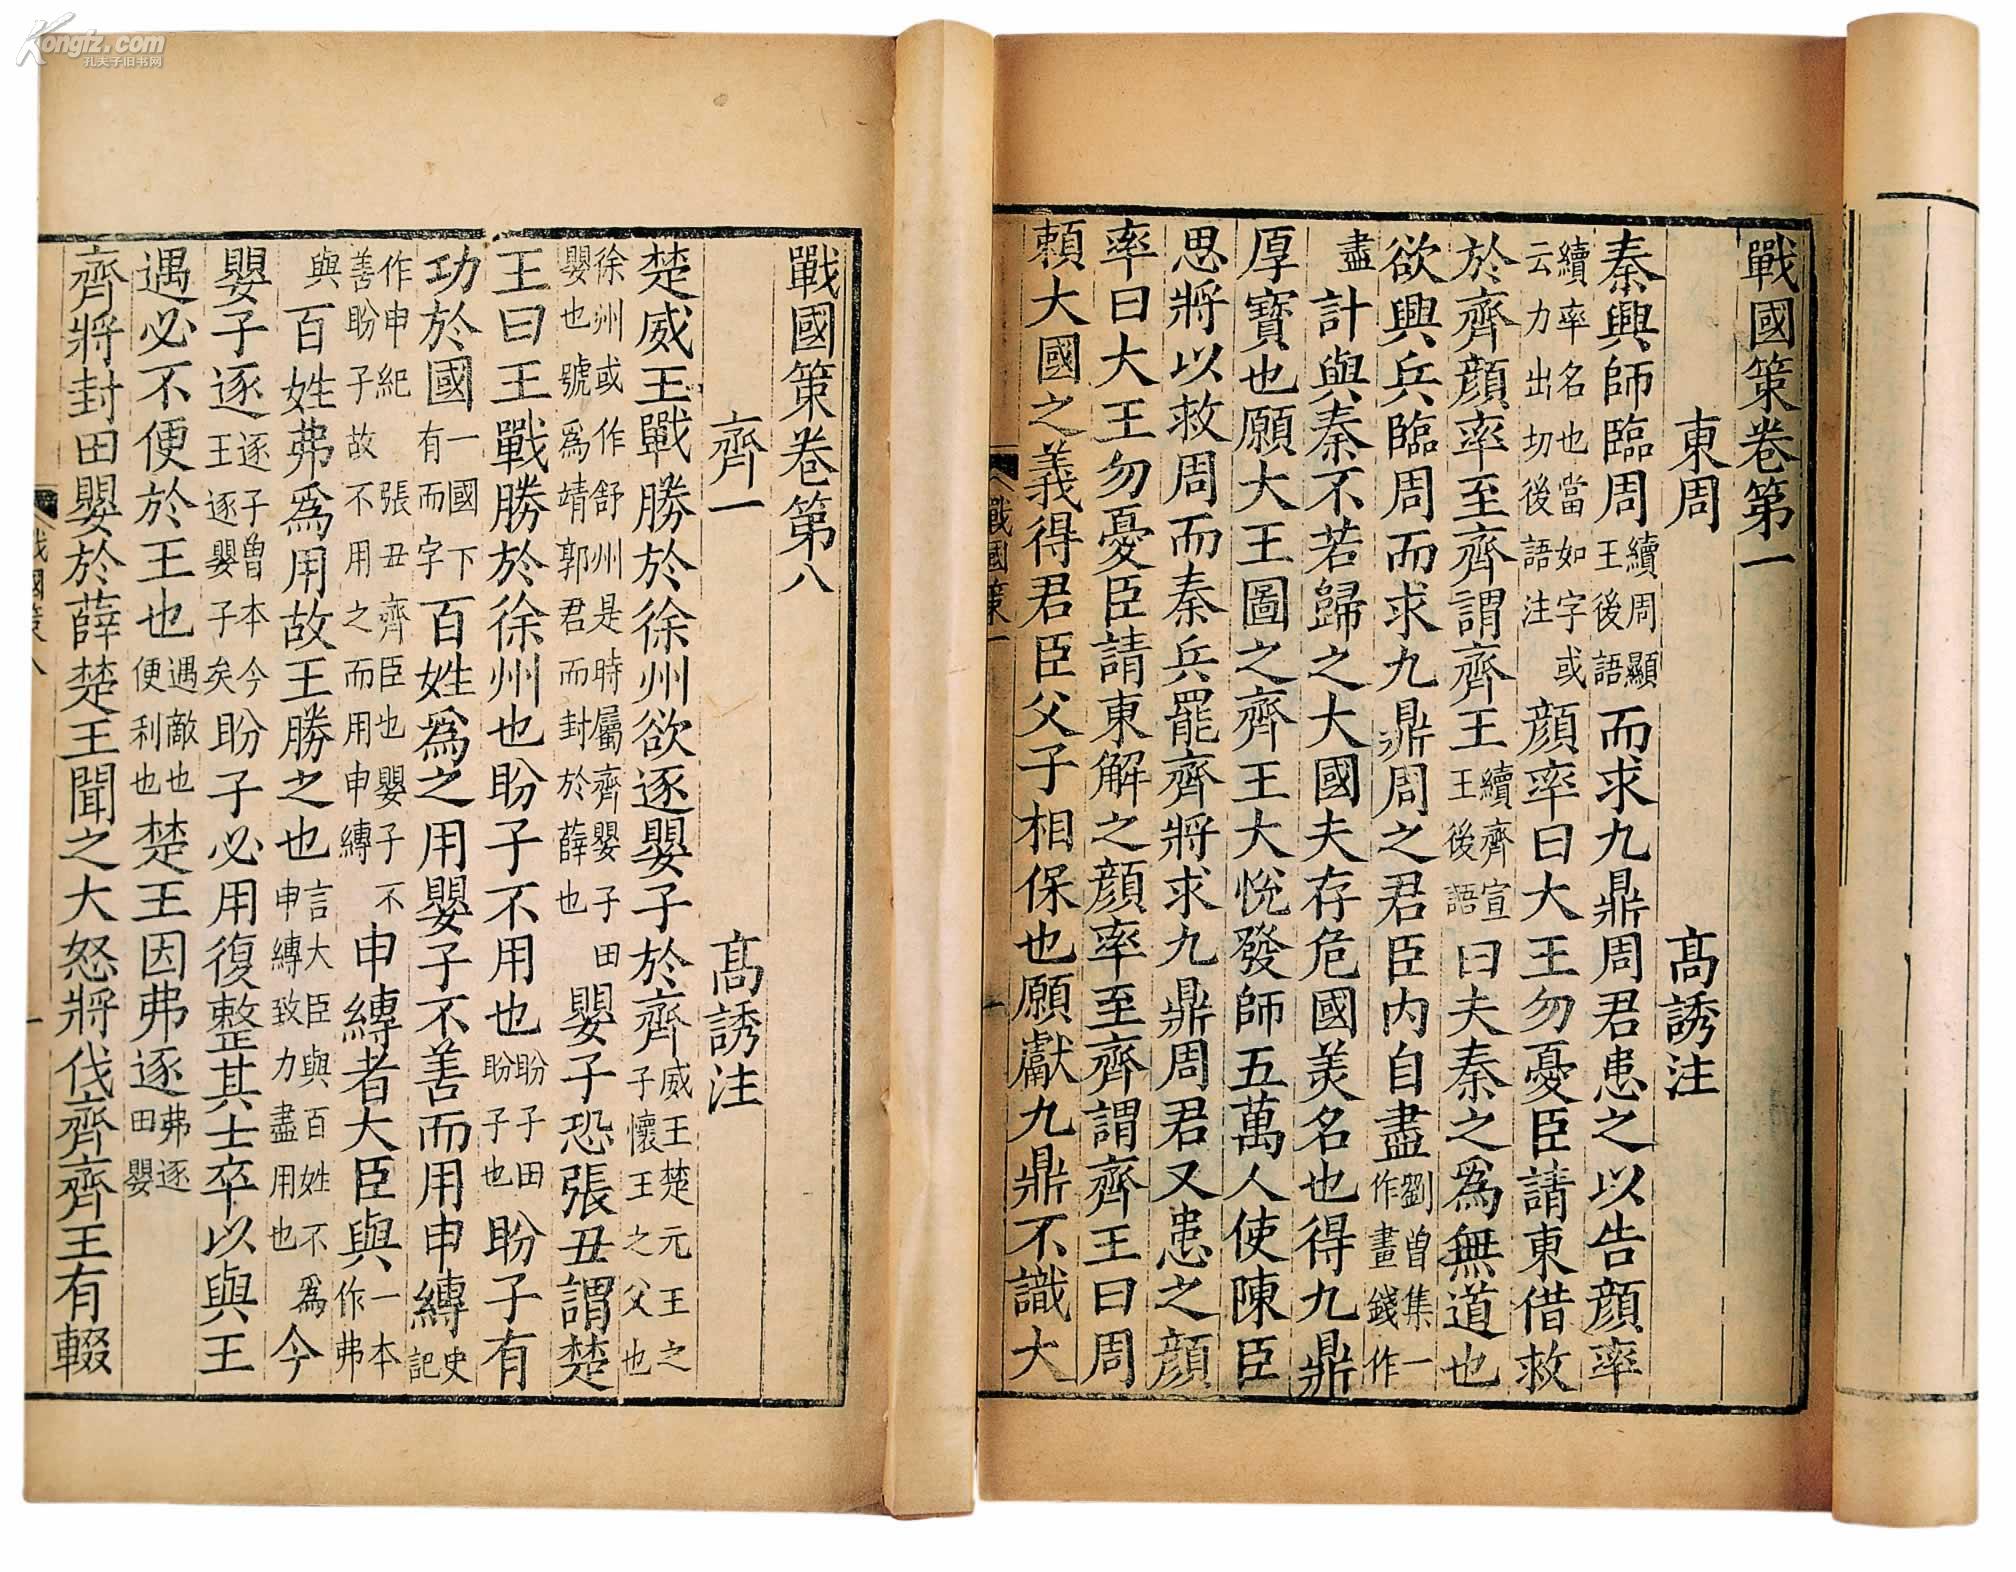 Kongfz.com
孔夫子旧书网
戰國策卷第一
東周 高誘注
秦興師臨周續周顯王後語而求九鼎周君患之以告顏率
續率名也當如字或云力出切後語注顏率曰大王勿憂臣請東借救
於齊顏率至齊謂齊王續齊宣王後語曰夫秦之爲無道也
欲興兵臨周而求九鼎周之君臣内自盡劉曾集一作畫錢作
盡計與秦不若歸之大國夫存危國美名也得九鼎
厚寳也願大王圖之齊王大悅發師五萬人使陳臣
思將以救周而秦兵罷齊將求九鼎周君又患之顏
率曰大王勿憂臣請東解之顏率至齊謂齊王曰周
賴大國之義得君臣父子相保也願獻九鼎不識大
戰國策一
一
戰國策卷第八
齊一 高誘注
楚威王戰勝於徐州欲逐嬰子於齊威王楚元王之子懷王之父也
徐州或作舒州是時屬齊嬰子田嬰也號爲靖郭君而封於薛也嬰子恐張丑謂楚
王曰王戰勝於徐州也盼子不用也盼子田盼子也盼子有
功於國一國下有而字百姓爲之用嬰子不善而用申縳史記
作申紀張丑齊臣也嬰子不善盼子故不用之而用申縳申縳者大臣與一本作弗
與百姓弗爲用故王勝之也言大臣與百姓不爲申縳致力盡用也今
嬰子逐逐子曾本今王逐嬰子矣盼子必用復整其士卒以與王
遇必不便於王也遇敵也便利也楚王因弗逐弗逐田嬰
齊將封田嬰於薛楚王聞之大怒將伐齊齊王有輟
戰國策八
一